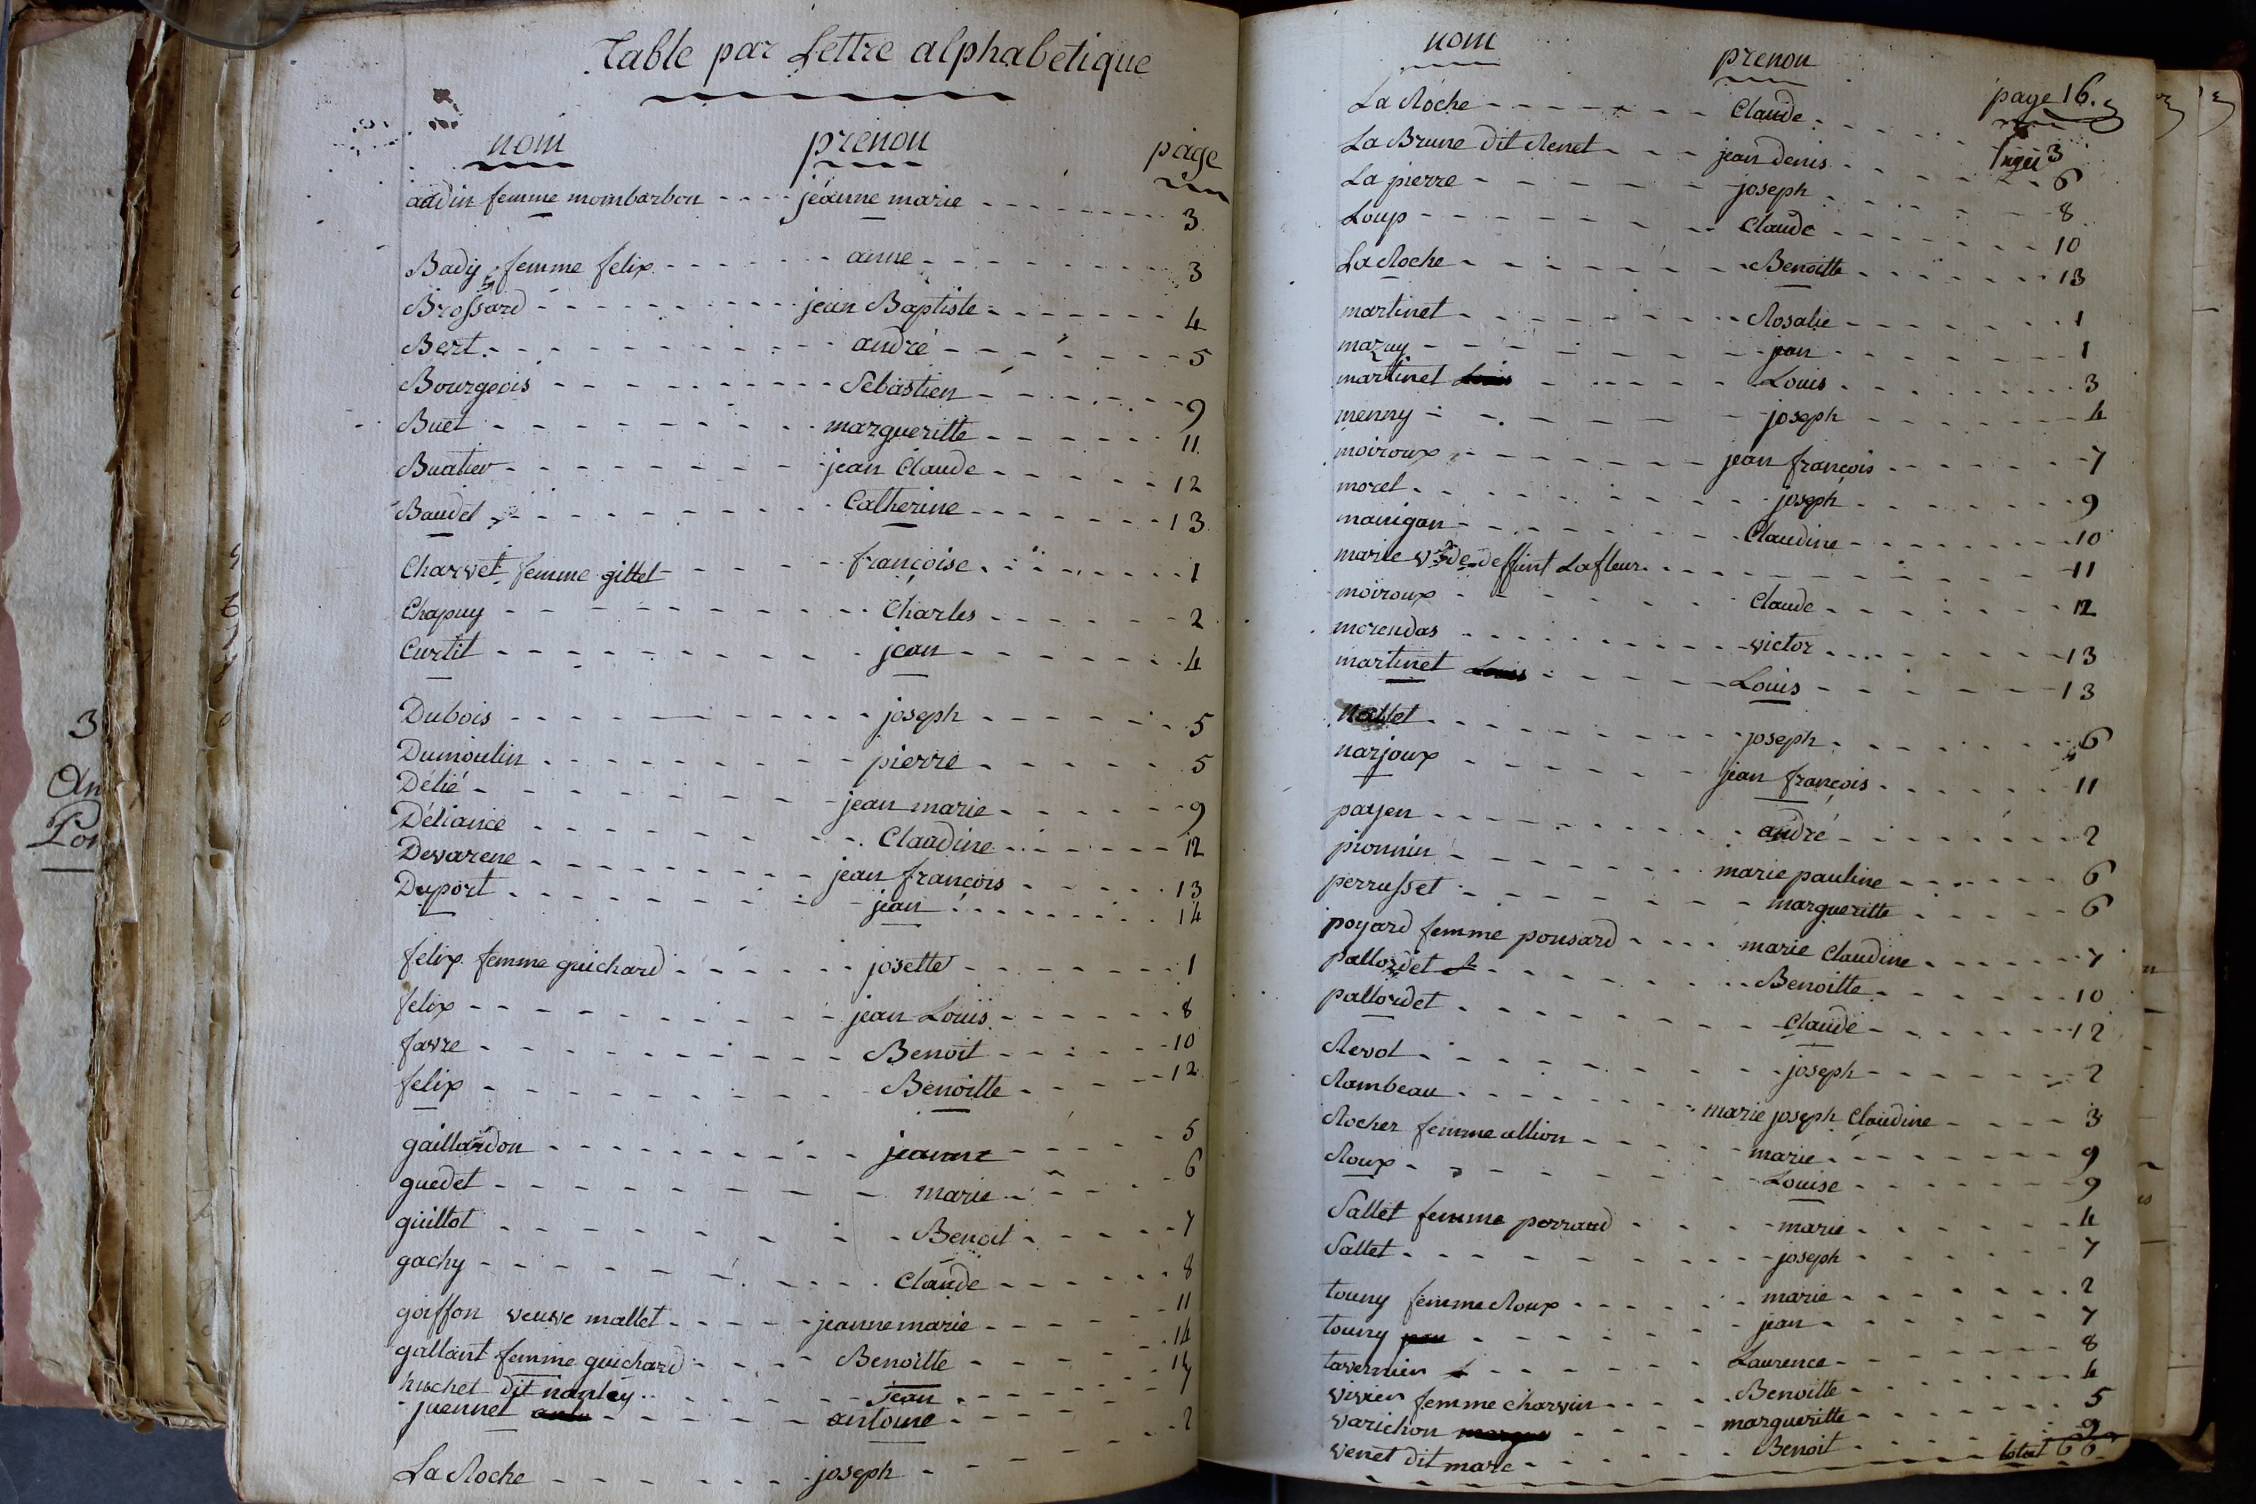 Table par Lettre alphabetique
nom prenom page
addin femme mombarbon jeanne marie 3
Bady femme felix anne 3
Brossard jean Baptiste 4
Bert andré 5
Bourgeois Sebastien 9
Buet margueritte 11
Buatier jean Claude 12
Baudet Catherine 13
Charvet femme gittet françoise 1
Chapuy Charles 2
Curtit jean 4
Dubois joseph 5
Dumoulin pierre 5
Délié jean marie 9
Déliance Claudine 12
Devarene jean francois 13
Duport jean 14
felix femme guichard josette 1
felix jean Louis 8
favre Benoit 10
felix Benoitte 12
gaillardon jeanne 5
guedet marie 6
guillot Benoit 7
gachy Claude 8
goiffon veuve mallet jeanne marie 11
gallant femme guichard Benoitte 14
huchet dit nantey jean 14
juennet antoine 1
La Roche joseph 2
nom prenom
page 16.
La Roche Claude 3
La Brune dit Renet jean denis 6
La pierre joseph 8
Loup Claude 10
La Roche Benoitte 13
martinet Rosalie 1
mazuy jean 1
martinet Louis 3
menny joseph 4
moiroux jean françois 7
morel joseph 9
manigan Claudine 10
marie vve de deffunt Lafleur 11
moiroux Claude 12
merendas victor 13
martinet Louis 13
nallet joseph 6
narjoux jean françois 11
payen andré 2
pionnin marie pauline 6
perrusset margueritte 6
poyard femme ponsard marie Claudine 7
pallordet Benoitte 10
pallordet Claude 12
Revol joseph 2
Rambeau marie joseph Claudine 3
Rocher femme allion marie 9
Roux Louise 9
Sallet femme perraud marie 4
Sallet joseph 7
touny femme Roux marie 2
touny jean 7
tavernier Laurence 8
vivier femme charvin Benoitte 4
varichon margueritte 5
venet dit marc Benoit 9
total 66